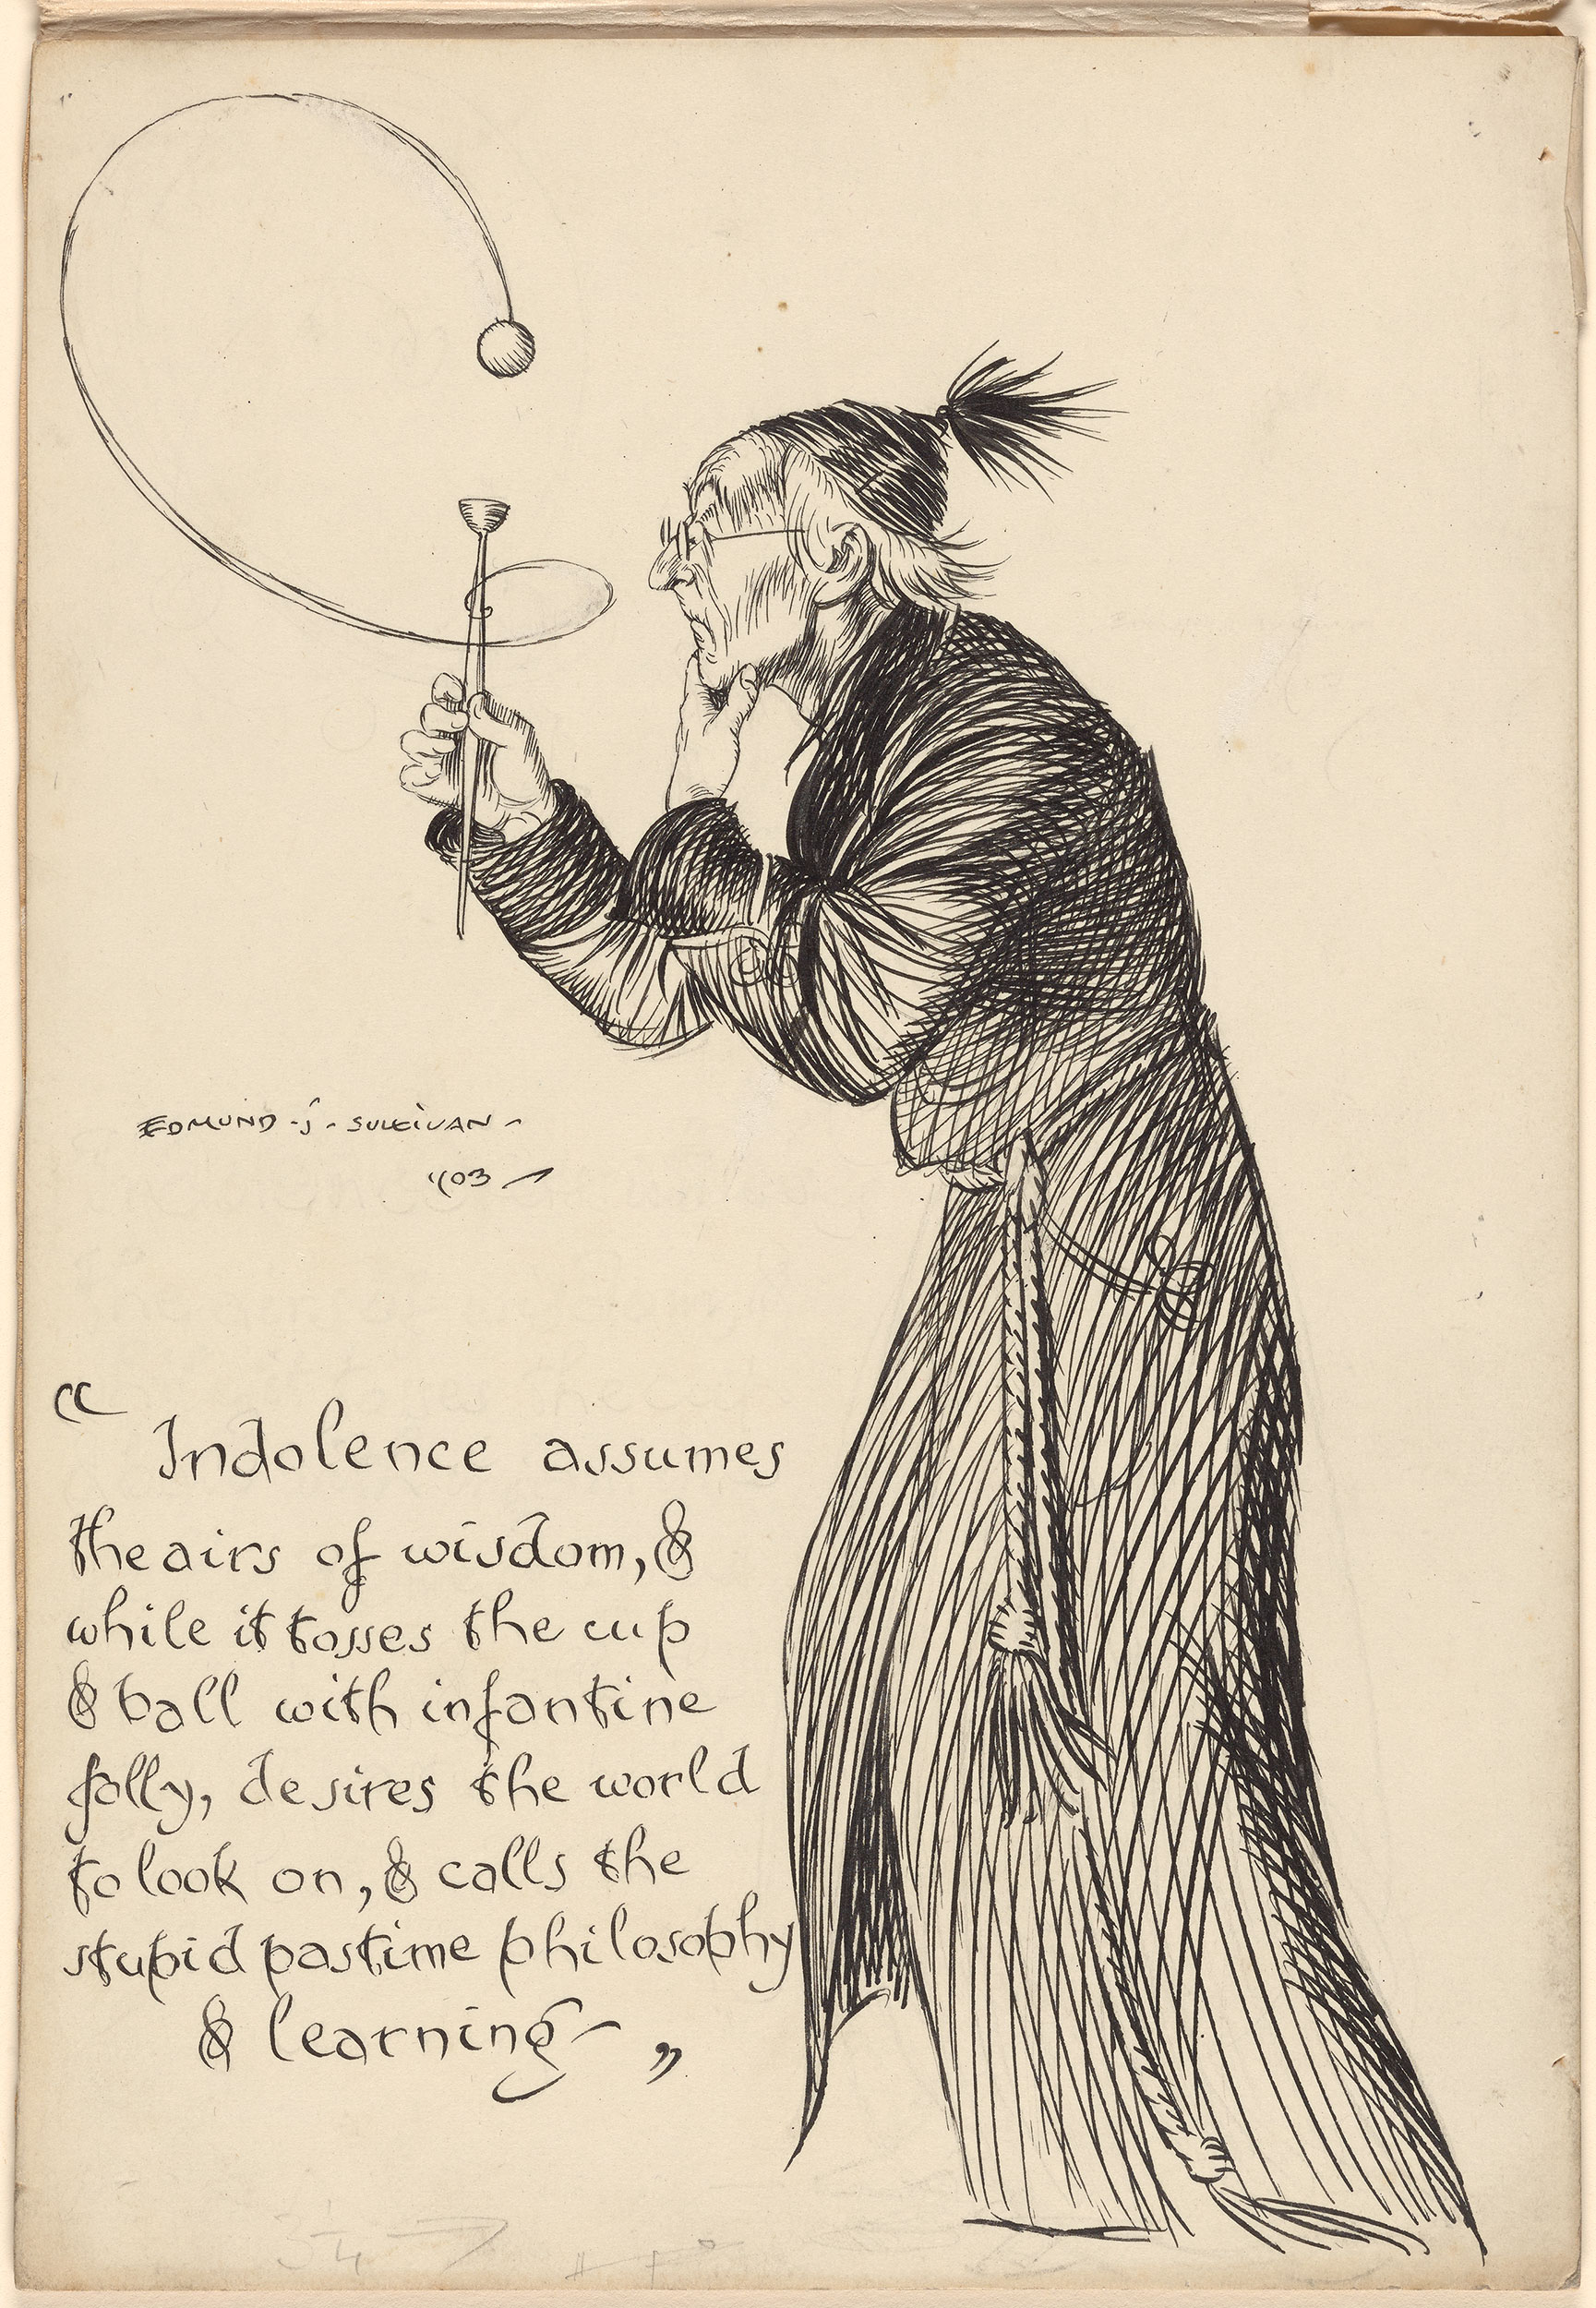 EDMUND · J · SULLIVAN –
'03 –
“ Indolence assumes
the airs of wisdom, &
while it tosses the cup
& ball with infantine
folly, desires the world
to look on, & calls the
stupid pastime philosophy
& learning – ”